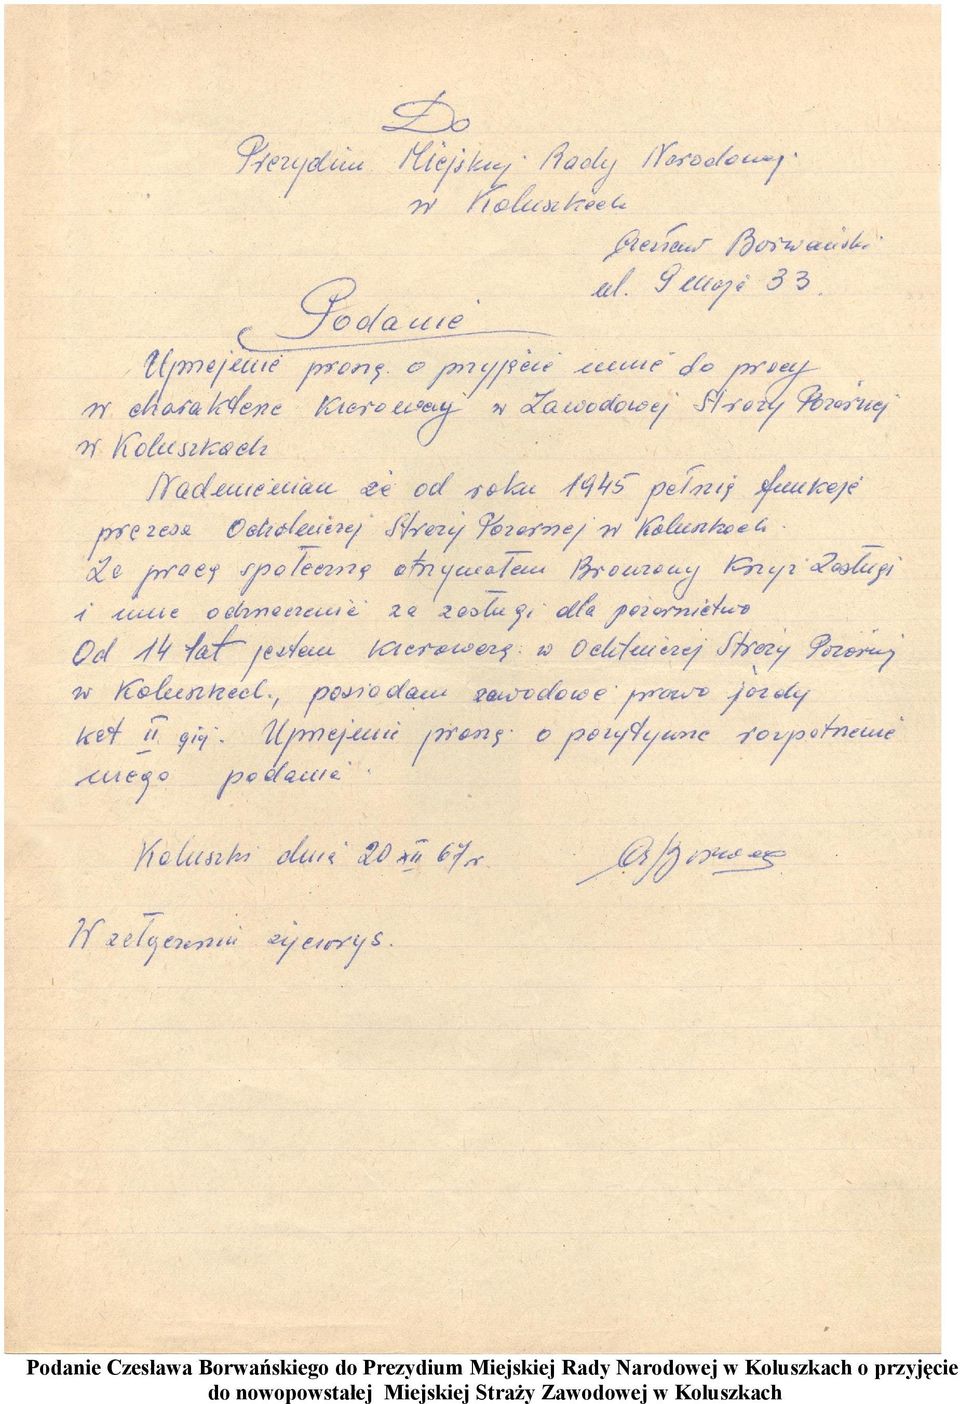 Do
Prezydium Miejskiej Rady Narodowej
w Koluszkach
Czesław Borwański
ul. 9 Maja 33.
Podanie
Uprzejmie proszę o przyjęcie mnie do pracy
w charakterze kierowcy w Zawodowej Straży Pożarnej
w Koluszkach
Nadmieniam że od roku 1945 pełnię funkcje
prezesa Ochotniczej Straży Pożarnej w Koluszkach.
Za pracę społeczną otrzymałem Bronzowy Krzyż Zasługi
i inne odznaczenie za zasługi dla pożarnictwa
Od 14 lat jestem kierowcą w Ochtniczej Straży Pożarnej
w Koluszkach, posiadam zawodowe prawo jazdy
kat II gią. Uprzejmie proszę o pozytywne rozpatrzenie
mego podania.
Koluszki dnia 20 XII 67 r.
W załączeniu życiorys.
Podanie Czesława Borwańskiego do Prezydium Miejskiej Rady Narodowej w Koluszkach o przyjęcie
do nowopowstałej Miejskiej Straży Zawodowej w Koluszkach